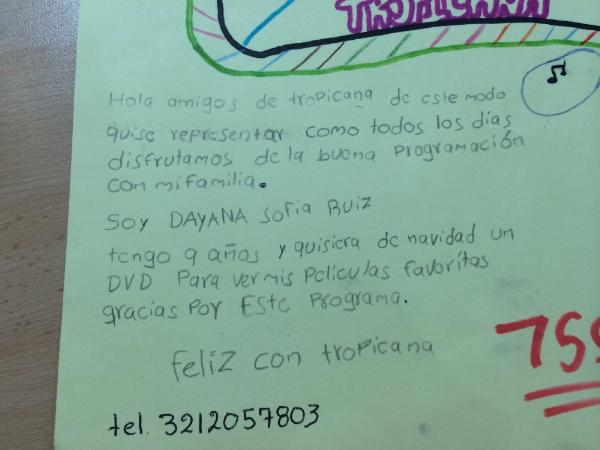 Tropicana
Hola amigos de tropicana de este modo
quise representar como todos los días
disfrutamos de la buena programación
con mi familia.
Soy DAYANA Sofia Ruiz
tengo 9 años y quisiera de navidad un
DVD Para ver mis Peliculas favoritas
gracias Por Este Programa.
feliz con tropicana
tel. 3212057803